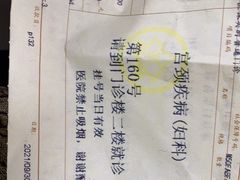 宫颈疾病(妇科)
第160号
请到门诊楼二楼就诊
挂号当日有效
医院禁止吸烟，谢谢
2021/09/30
p132